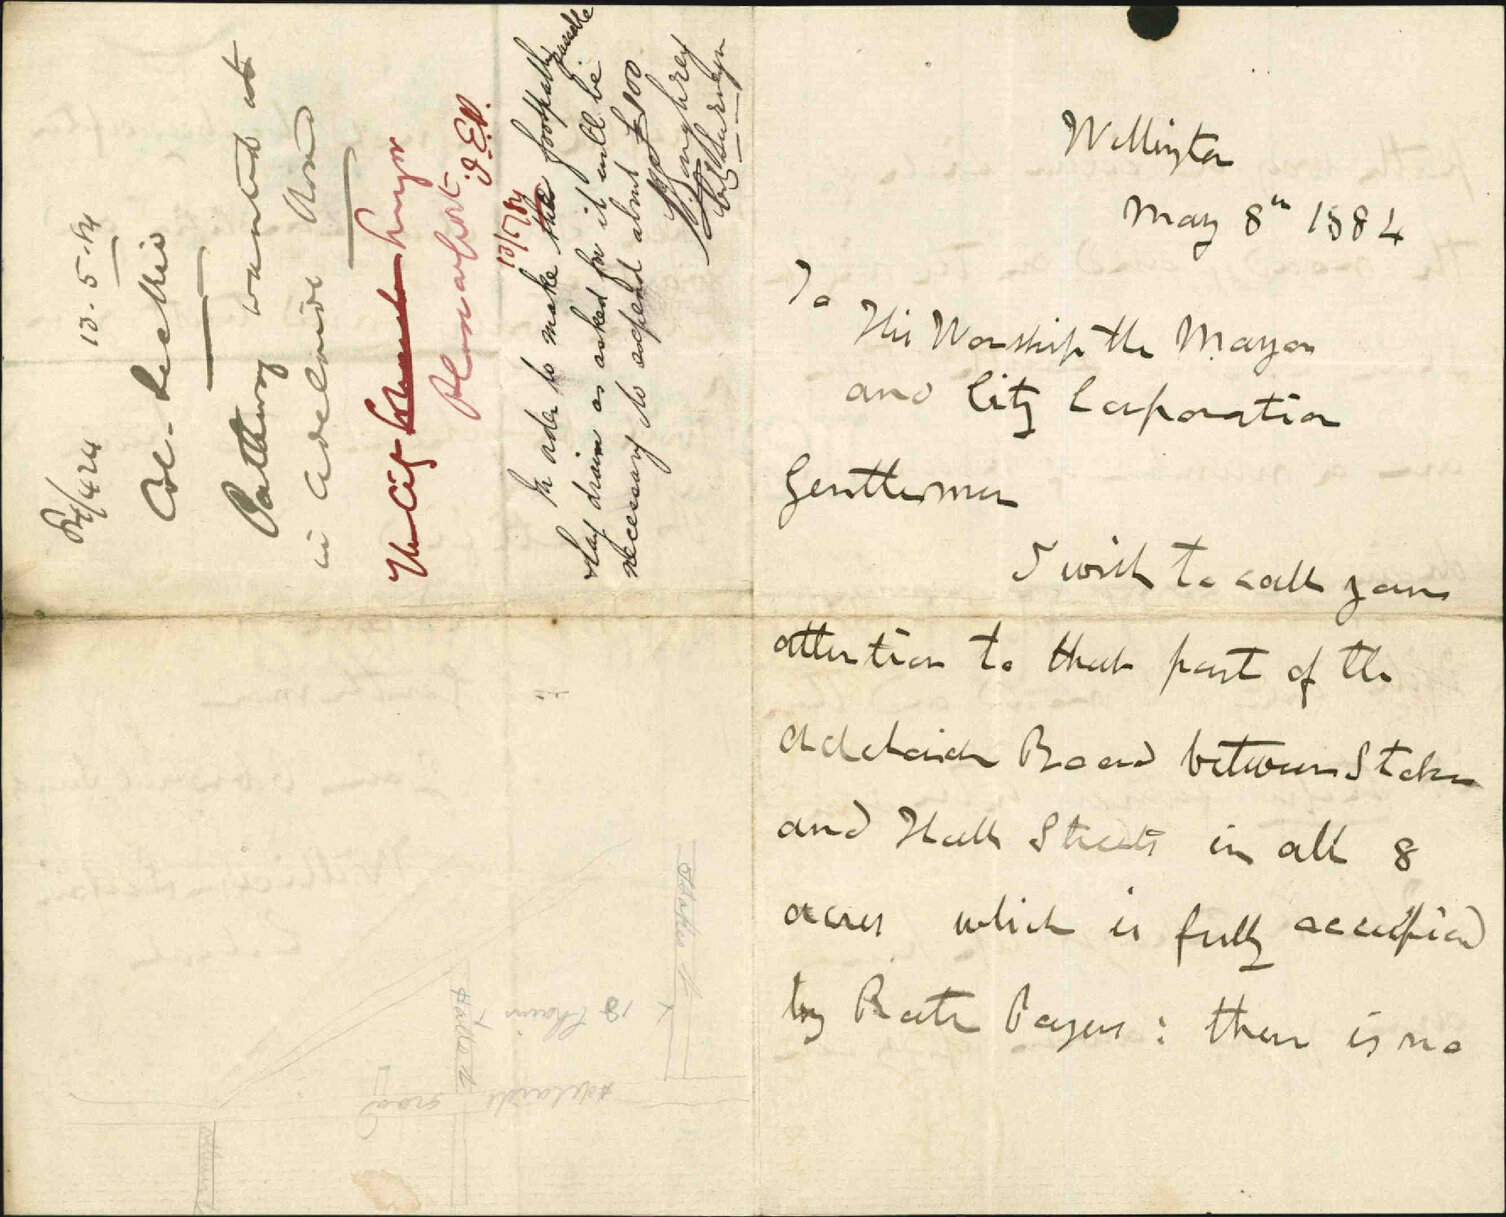 Wellington
May 8th 1884
To
His Worship the Mayor
and City Corporation
Gentlemen
I wish to call your
attention to that part of the
Adelaide Road between Stokes
and Hall Streets in all 8
acres which is fully occupied
by Rate Payers : there is no
84/424 13.5.84
Pathway wanted at
in Adelaide Road
The City Surveyor
Please report
10/7/84
In order to make the footpath &
lay drain as asked for it will be
necessary to expend about £100.
C. Surveyor
Stokes St
18 Chains
Halls St
Adelaide road